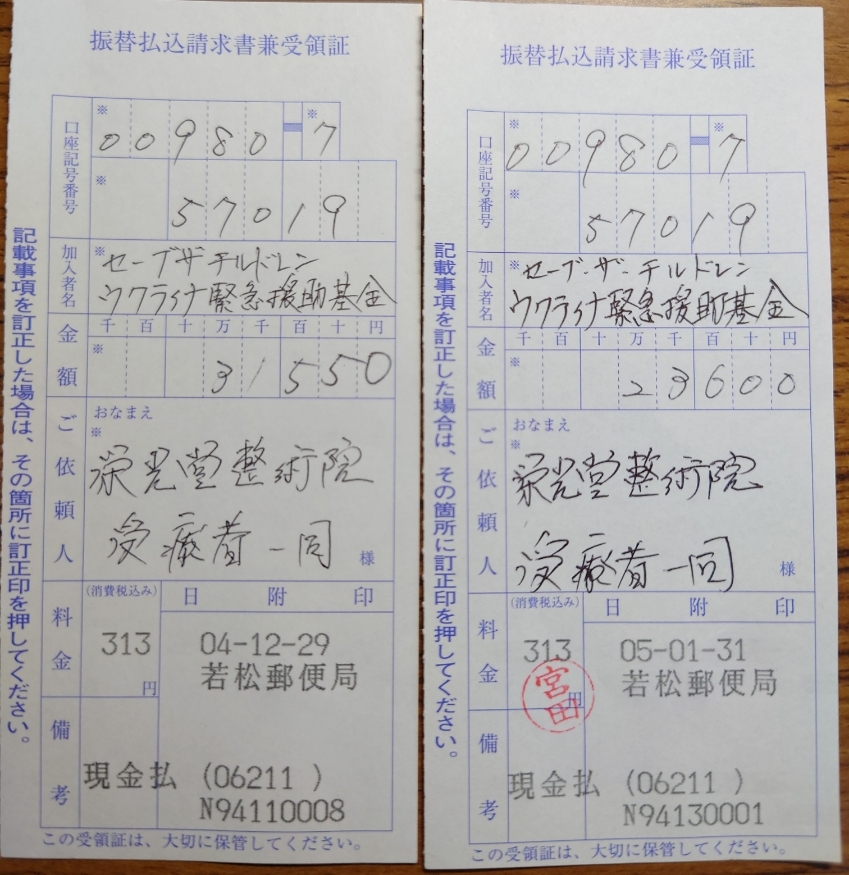 振替払込請求書兼受領証
口座記号番号
※
00980-7
※
※
57019
加入者名
※
セーブザチルドレン
ウクライナ緊急援助基金
金額
千百十万千百十円
※
31550
ご依頼人
おなまえ
※
栄光堂整術院
受療者一同 様
料金
(消費税込み)
313
円
日附印
04-12-29
若松郵便局
備考
現金払 (06211 )
N94110008
この受領証は、大切に保管してください。
記載事項を訂正した場合は、その箇所に訂正印を押してください。
振替払込請求書兼受領証
口座記号番号
※
00980-7
※
※
57019
加入者名
※
セーブ・ザ・チルドレン
ウクライナ緊急援助基金
金額
千百十万千百十円
※
23600
ご依頼人
おなまえ
※
栄光堂整術院
受療者一同 様
料金
(消費税込み)
313
円
宮田
日附印
05-01-31
若松郵便局
備考
現金払 (06211 )
N94130001
この受領証は、大切に保管してください。
記載事項を訂正した場合は、その箇所に訂正印を押してください。